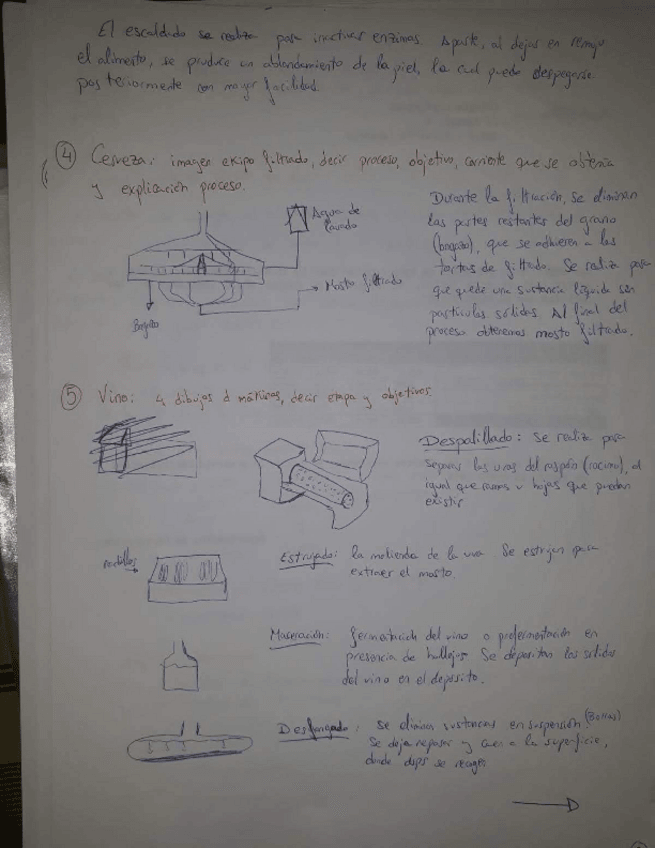 El escaldado se realiza para inactivar enzimas. Aparte, al dejar en remojo
el alimento, se produce un ablandamiento de la piel, la cual puede despegarse
posteriormente con mayor facilidad.
④ Cerveza: imagen ekipo filtrado, decir proceso, objetivo, corriente que se obtenía
y explicación proceso.
Agua de
lavado
Mosto filtrado
Bagazo
Durante la filtración, se eliminan
las partes restantes del grano
(bagazo), que se adhieren a las
tortas de filtrado. Se realiza para
que quede una sustancia líquida sin
partículas sólidas. Al final del
proceso obtenemos mosto filtrado.
⑤ Vino: 4 dibujos d mákinas, decir etapa y objetivos.
Despalillado: Se realiza para
separar las uvas del raspón (racimo), al
igual que ramas u hojas que puedan
existir
rodillos
Estrujado: la molienda de la uva. Se estrujan para
extraer el mosto.
Maceración: fermentación del vino o prefermentación en
presencia de hollejos. Se depositan los sólidos
del vino en el depósito.
Desfangado: Se eliminan sustancias en suspensión (Borras)
Se deja reposar y caen a la superficie,
donde dsps se recogen